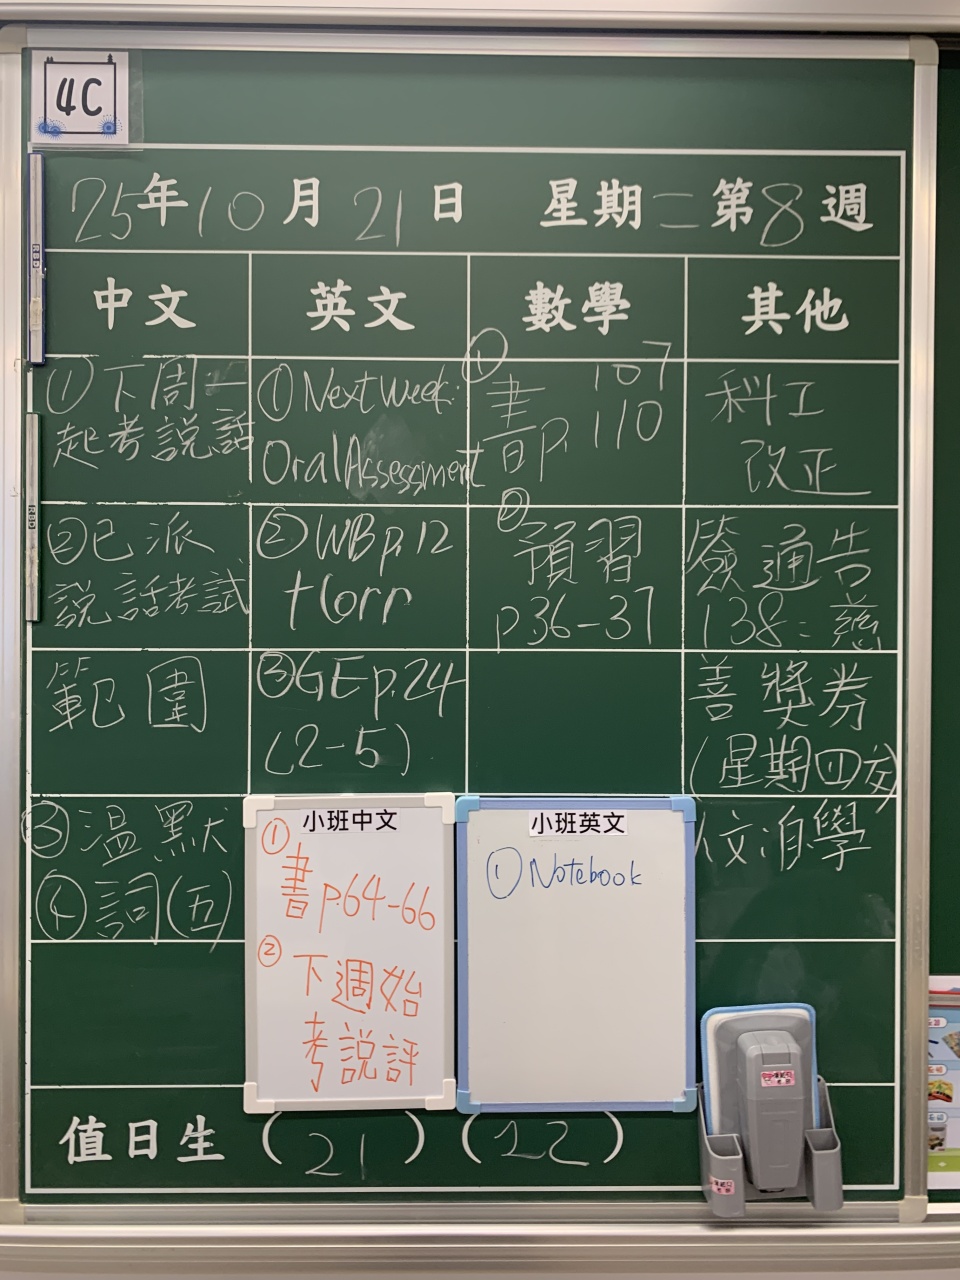 4C
25年10月21日 星期二第8週
中文 英文 數學 其他
①下周一
起考說話
②已派
說話考試
範圍
③溫默
④詞(五)
①Next Week:
Oral Assessment
②WB p.12
+Corr
③GE p.24
(2-5)
①書p.107
110
②預習
p.36-37
科工
改正
簽通告
138:慈
善獎券
(星期四交)
小班中文
①書p.64-66
②下週始
考說評
小班英文
①Notebook
值日生(21)(12)